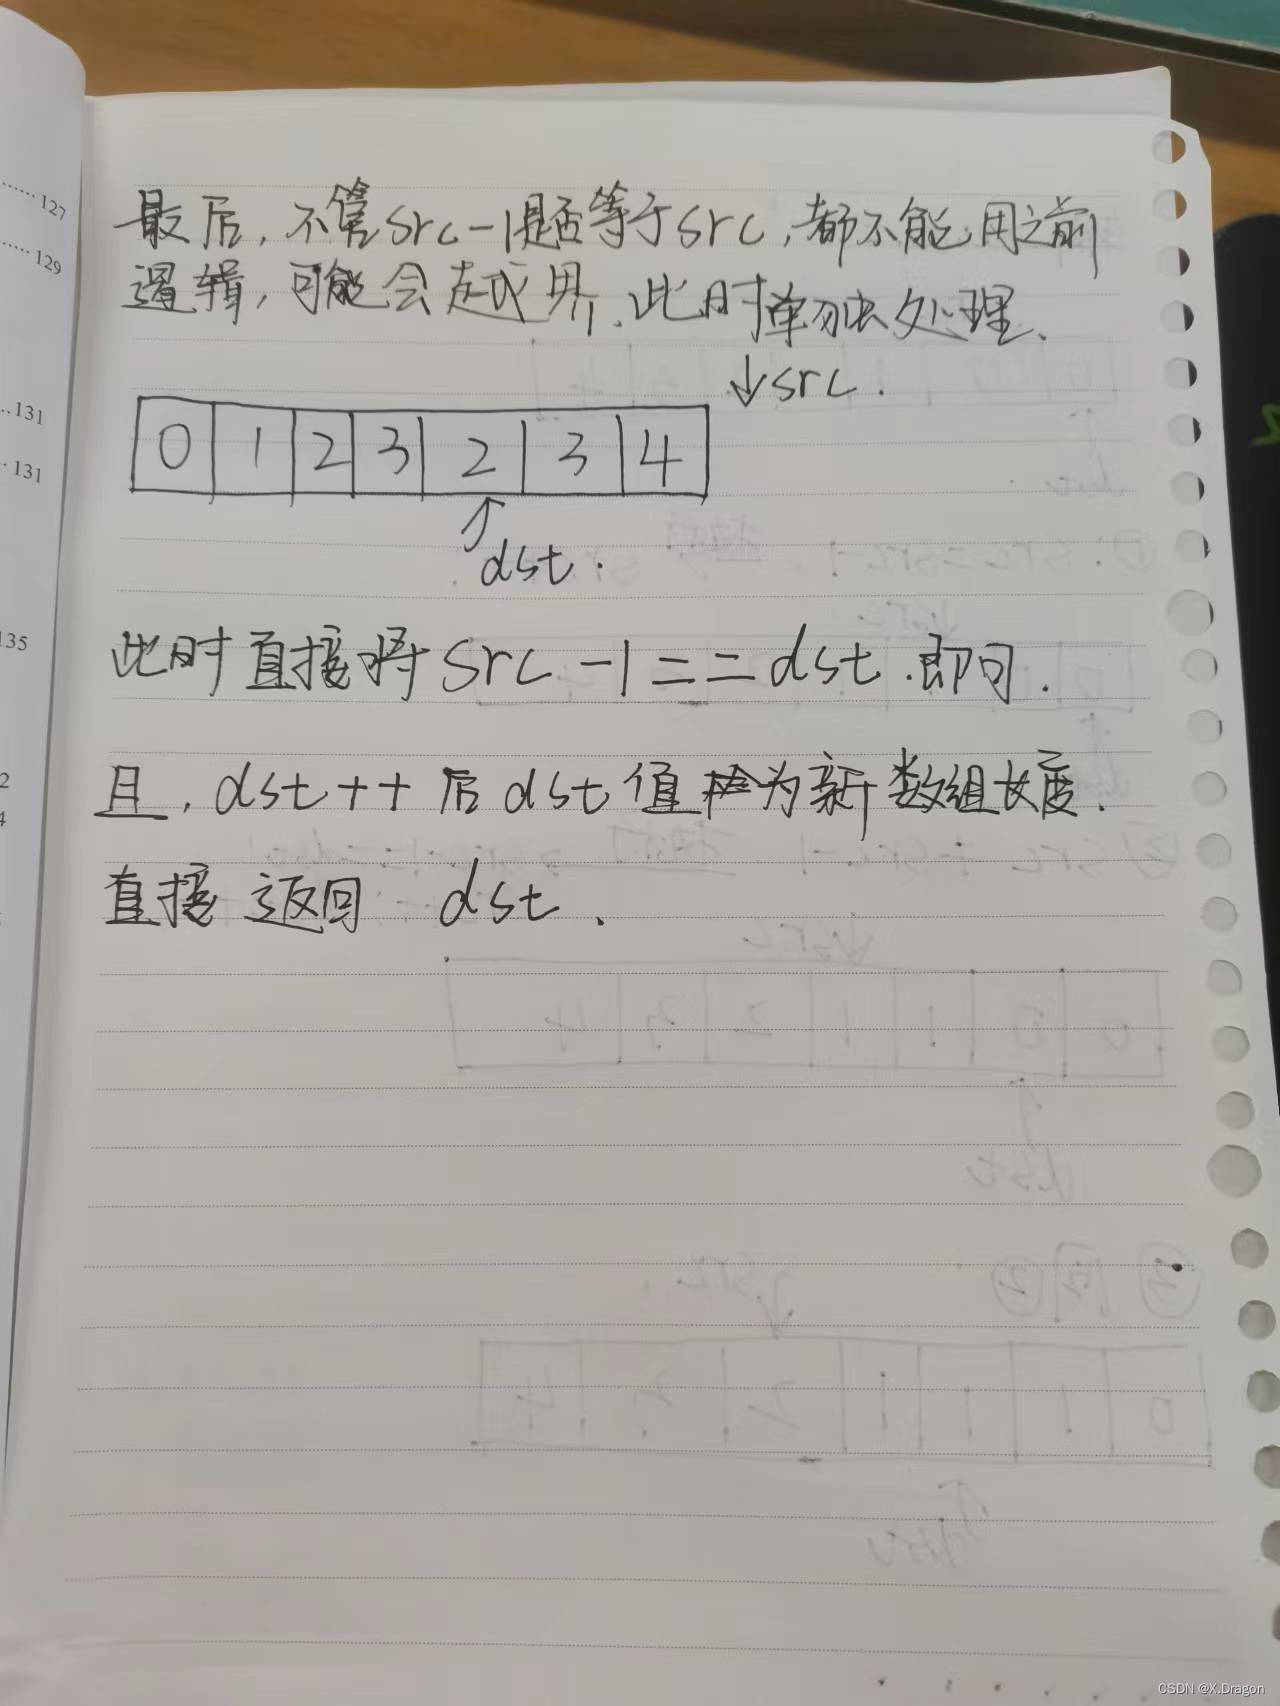 最后，不管src-1是否等于src，都不能用之前
逻辑，可能会越界．此时单独处理．
↓src．
0 1 2 3 2 3 4
dst．
此时直接将src-1==dst．即可．
且，dst++后dst值为新数组长度．
直接返回 dst．
127
129
131
131
135
2
4
CSDN @X.Dragon